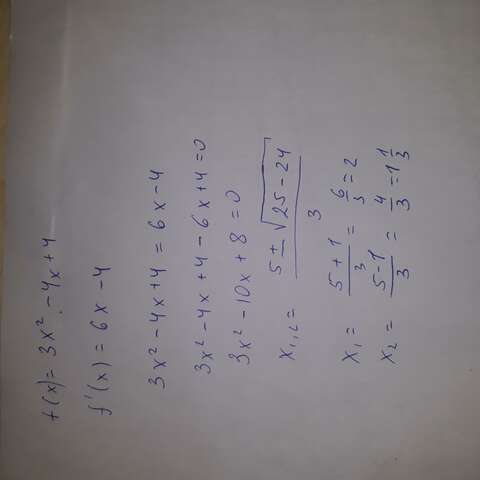 f(x) = 3x² - 4x + 4
f'(x) = 6x - 4
3x² - 4x + 4 = 6x - 4
3x² - 4x + 4 - 6x + 4 = 0
3x² - 10x + 8 = 0
x₁,₂ = (5 ± √(25 - 24))/3
x₁ = (5 + 1)/3 = 6/3 = 2
x₂ = (5 - 1)/3 = 4/3 = 1 1/3